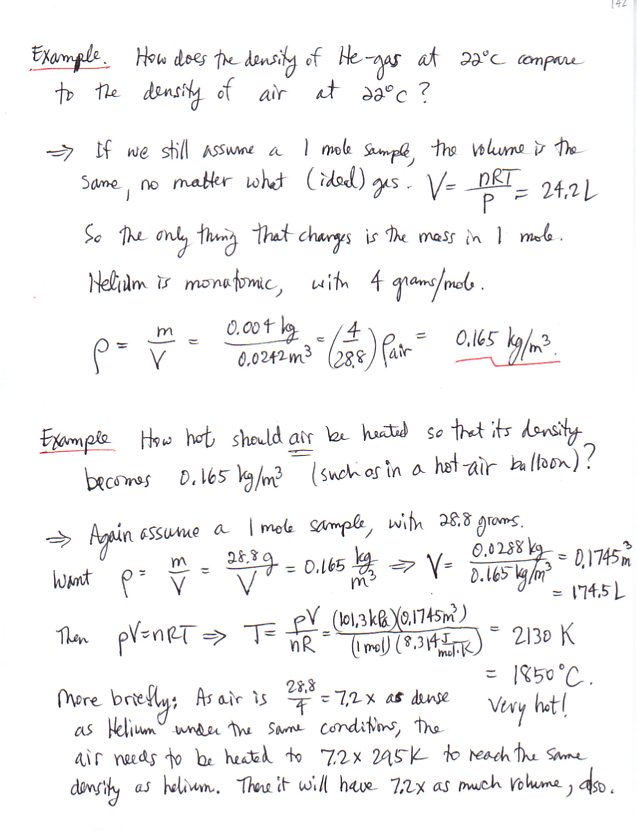 142
Example. How does the density of He-gas at 22°C compare
to the density of air at 22°C?
⇒ If we still assume a 1 mole sample, the volume is the
same, no matter what (ideal) gas. V = nRT/P = 24.2 L
So the only thing that changes is the mass in 1 mole.
Helium is monatomic, with 4 grams/mole.
ρ = m/V = 0.004 kg/0.0242 m³ = (4/28.8) ρair = 0.165 kg/m³.
Example How hot should air be heated so that its density
becomes 0.165 kg/m³ (such as in a hot-air balloon)?
⇒ Again assume a 1 mole sample, with 28.8 grams.
Want ρ = m/V = 28.8 g/V = 0.165 kg/m³ ⇒ V = 0.0288 kg/0.165 kg/m³ = 0.1745 m³
= 174.5 L
Then pV = nRT ⇒ T = pV/nR = (101.3 kPa)(0.1745 m³)/(1 mol)(8.314 J/mol·K) = 2130 K
= 1850°C.
More briefly: As air is 28.8/4 = 7.2 x as dense
Very hot!
as Helium under the same conditions, the
air needs to be heated to 7.2 x 295 K to reach the same
density as helium. There it will have 7.2x as much volume, also.